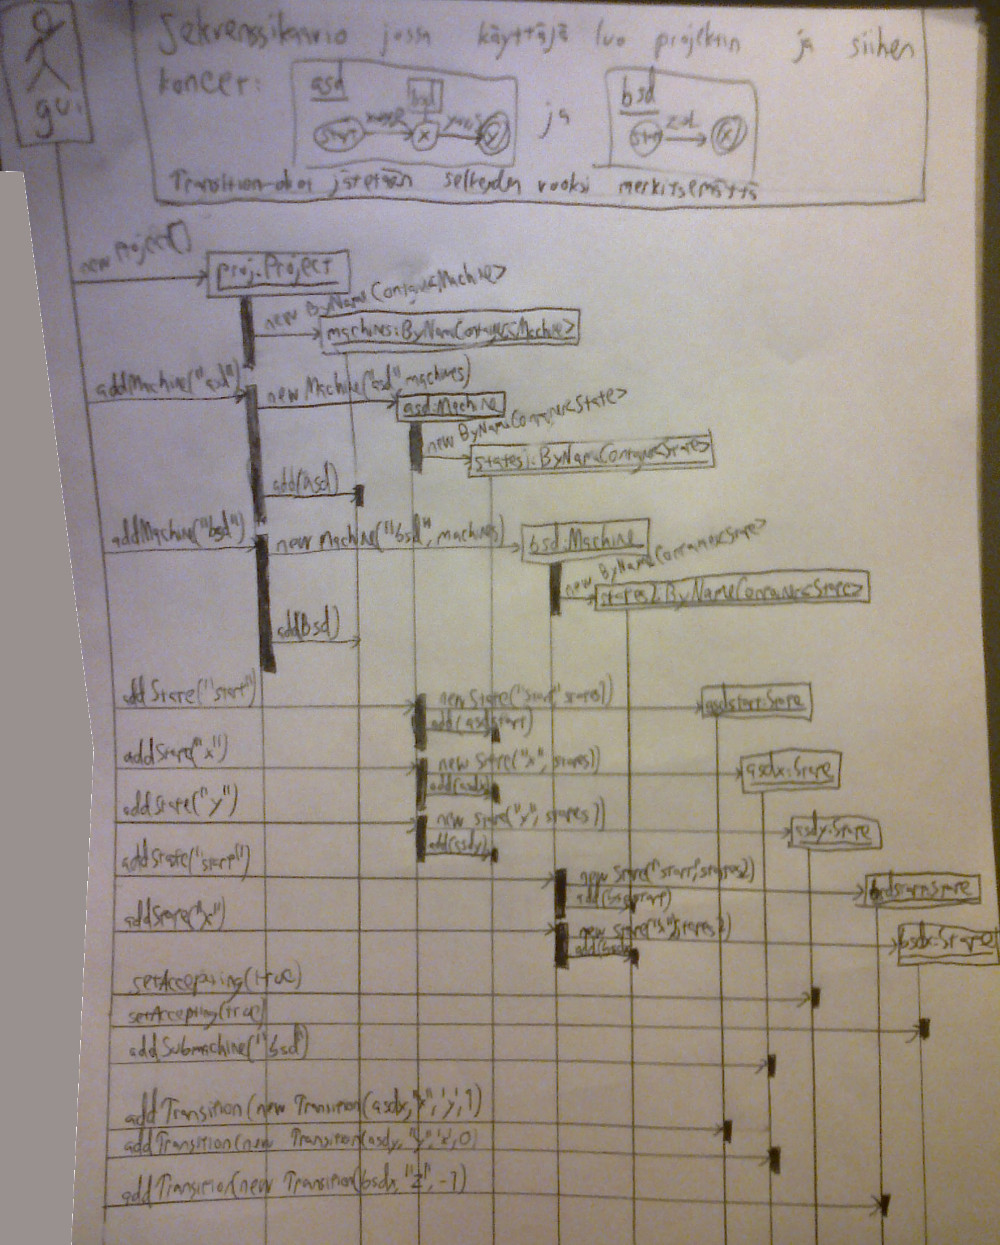 Sekvenssikaavio jossa käyttäjä luo projektin ja siihen
koneet:
asd
bsd
start
x
y
ja
bsd
start
x
Transition-oliot jätetään selkeyden vuoksi merkitsemättä
gui
new Project()
proj:Project
new ByNameContainer<Machine>
machines:ByNameContainer<Machine>
addMachine("asd")
new Machine("asd" machines)
asd:Machine
new ByNameContainer<State>
states1:ByNameContainer<State>
add(asd)
addMachine("bsd")
new Machine("bsd", machines)
bsd:Machine
new ByNameContainer<State>
states2:ByNameContainer<State>
add(Bsd)
addState("start")
new State("start" states1)
asdstart:State
add(asdstart)
addState("x")
new State("x", states1)
asdx:State
add(asdx)
addState("y")
new State("y", states1)
asdy:State
add(asdy)
addState("start")
new State("start", states2)
bsdstart:State
add(bsdstart)
addState("x")
new State("x", states2)
bsdx:State
add(bsdx)
setAccepting(true)
setAccepting(true)
addSubmachine("bsd")
addTransition(new Transition(asdx,
addTransition(new Transition(asdy,
addTransition(new Transition(bsdx, "z", -1)